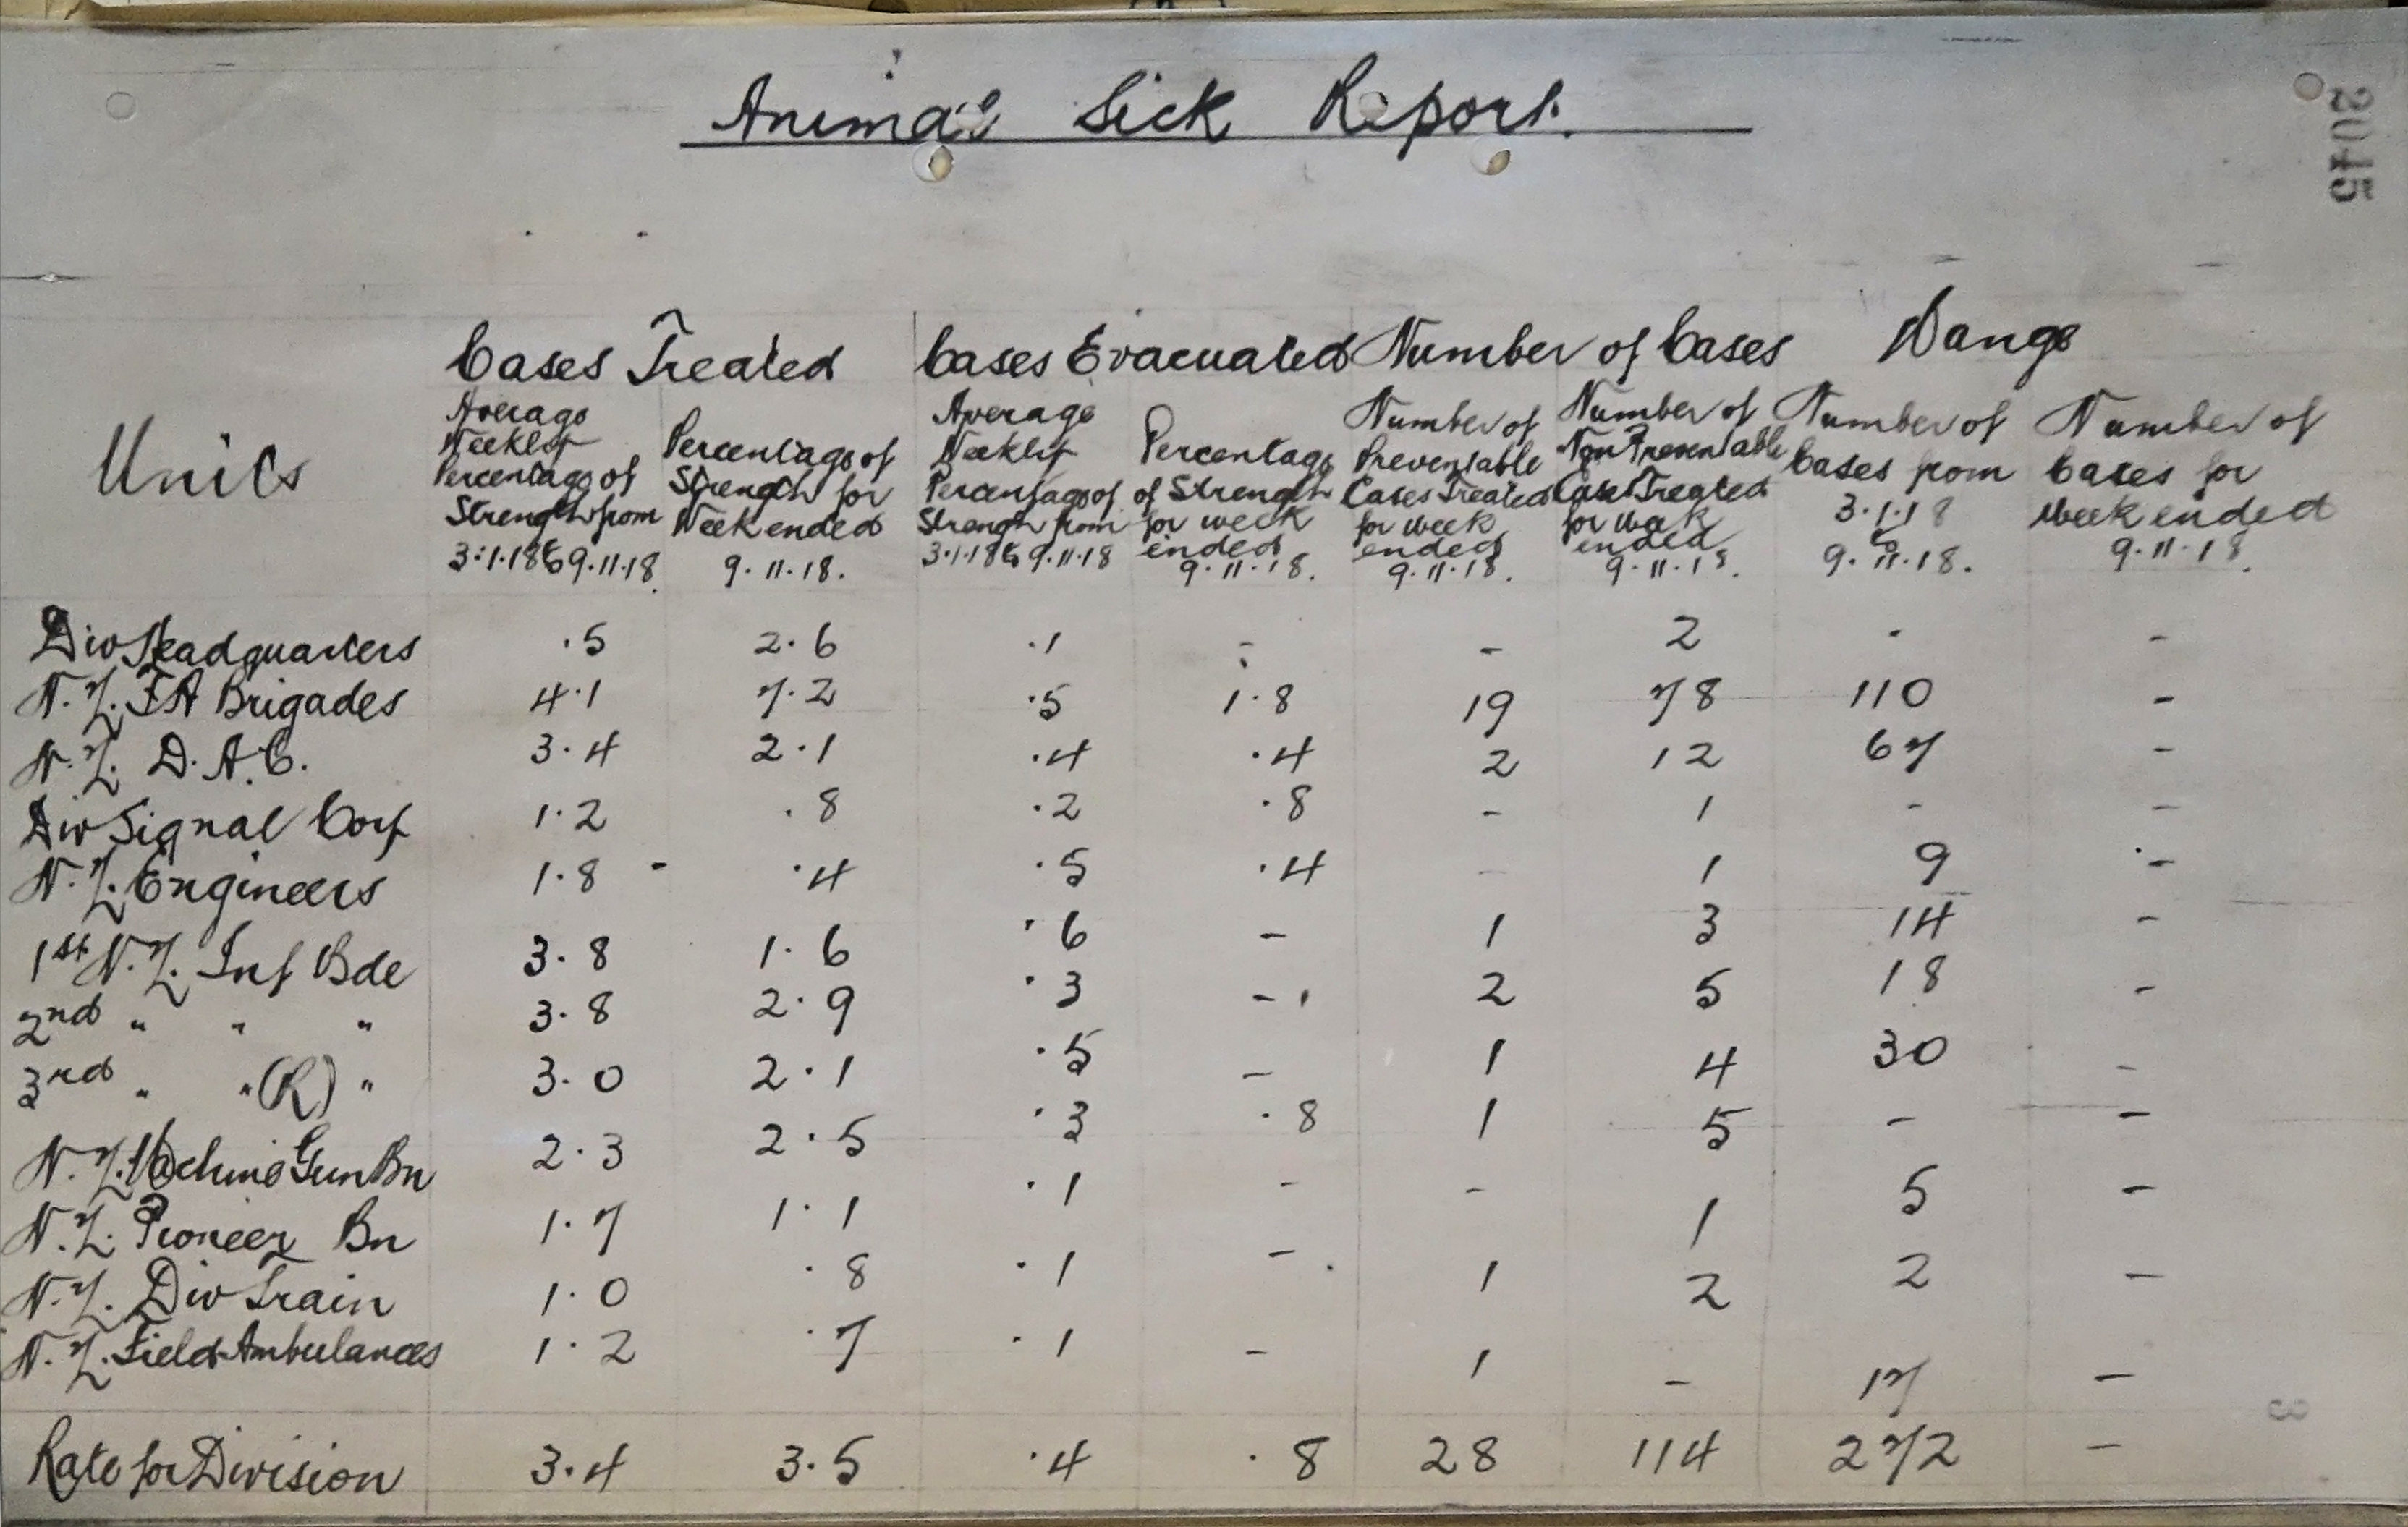 Animal Sick Report.
2045
Cases Treated Cases Evacuated Number of Cases Mange
Units
Average Weekly Percentage of Strength from 3.1.18 to 9.11.18.
Percentage of Strength for Week ended 9.11.18.
Average Weekly Percentage of Strength from 3.1.18 to 9.11.18
Percentage of Strength for week ended 9.11.18.
Number of Preventable Cases Treated for week ended 9.11.18.
Number of Non Preventable Cases Treated for week ended 9.11.18.
Number of Cases from 3.1.18 to 9.11.18.
Number of Cases for Week ended 9.11.18.
Div Headquarters .5 2.6 .1 - - 2 - -
N.Z. FA Brigades 4.1 7.2 .5 1.8 19 78 110 -
N.Z. D.A.C. 3.4 2.1 .4 .4 2 12 67 -
Div Signal Corp 1.2 .8 .2 .8 - 1 - -
N.Z. Engineers 1.8 .4 .5 .4 - 1 9 -
1st N.Z. Inf Bde 3.8 1.6 .6 - 1 3 14 -
2nd " " " 3.8 2.9 .3 - 2 5 18 -
3rd " " (R) " 3.0 2.1 .5 - 1 4 30 -
N.Z. Machine Gun Bn 2.3 2.5 .3 .8 1 5 - -
N.Z. Pioneer Bn 1.7 1.1 .1 - - 1 5 -
N.Z. Div Train 1.0 .8 .1 - 1 2 2 -
N.Z. Field Ambulances 1.2 .7 .1 - 1 - 17 -
Rate for Division 3.4 3.5 .4 .8 28 114 272 -
3